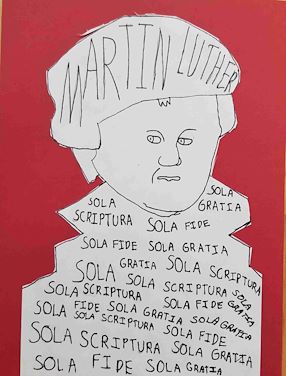 MARTIN LUTHER
SOLA SCRIPTURA
SOLA GRATIA
SOLA FIDE
SOLA FIDE SOLA GRATIA
SOLA GRATIA SOLA SCRIPTURA
SOLA SCRIPTURA SOLA SCRIPTURA
SOLA FIDE GRATIA
SOLA FIDE SOLA GRATIA SOLA GRATIA
SOLA SCRIPTURA SOLA FIDE
SOLA SCRIPTURA SOLA GRATIA
SOLA FIDE SOLA GRATIA